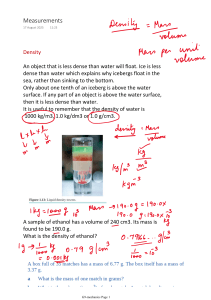 Measurements
Density = Mass
volume
Mass per unit
volume
Density
An object that is less dense than water will float. Ice is less
dense than water which explains why icebergs float in the
sea, rather than sinking to the bottom.
Only about one tenth of an iceberg is above the water
surface. If any part of an object is above the water surface,
then it is less dense than water.
It is useful to remember that the density of water is
1000 kg/m3 (1.0 kg/dm3 or 1.0 g/cm3).
density = Mass
volume
kg
m³
kg/m³
kgm⁻³
1kg = 1000 g
Mass = 190.0 g
A sample of ethanol has a volume of 240 cm3. Its mass is
found to be 190.0 g.
What is the density of ethanol?
0.79 g/cm³
A box full of 35 matches has a mass of 6.77 g. The box itself has a mass of
3.37 g.
a What is the mass of one match in grams?